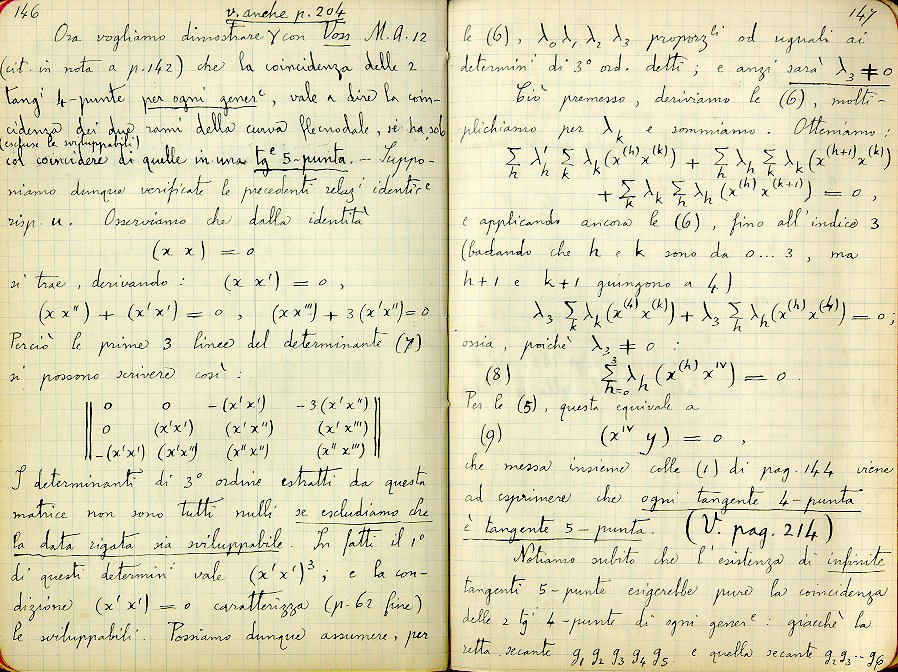 146
v. anche p. 204
Ora vogliamo dimostrare con Voss M.A. 12
(cit. in nota a p. 142) che la coincidenza delle 2
tangi 4-punte per ogni generᵉ, vale a dire la coin-
cidenza dei due rami della curva flecnodale, si ha sol
(escluse le sviluppabili)
col coincidere di quelle in una tgᵉ 5-punta. — Suppo-
niamo dunque verificate le precedenti relazⁱ identicᵉ
risp. u. Osserviamo che dalla identità
(x x) = 0
si trae, derivando : (x x') = 0 ,
(x x'') + (x'x') = 0 , (x x''') + 3 (x'x'') = 0
Perciò le prime 3 linee del determinante (7)
si possono scrivere così :
0 0 -(x'x') -3(x'x'')
0 (x'x') (x'x'') (x'x''')
-(x'x') (x'x'') (x''x'') (x''x''')
I determinanti di 3° ordine estratti da questa
matrice non sono tutti nulli se escludiamo che
la data rigata sia sviluppabile. In fatti il 1°
di questi determinⁱ vale (x'x')³ ; e la con-
dizione (x'x') = 0 caratterizza (p. 62 fine)
le sviluppabili. Possiamo dunque assumere, per
147
le (6), λ₀ λ₁ λ₂ λ₃ proporzˡⁱ od uguali ai
determinⁱ di 3° ord. detti ; e anzi sarà λ₃ ≠ 0
Ciò premesso, deriviamo le (6), molti-
plichiamo per λₖ e sommiamo. Otteniamo :
∑ₕ λ'ₕ ∑ₖ λₖ (x⁽ʰ⁾ x⁽ᵏ⁾) + ∑ₕ λₕ ∑ₖ λₖ (x⁽ʰ⁺¹⁾ x⁽ᵏ⁾)
+ ∑ₖ λₖ ∑ₕ λₕ (x⁽ʰ⁾ x⁽ᵏ⁺¹⁾) = 0 ,
e applicando ancora le (6), fino all'indice 3
(badando che h e k sono da 0 ... 3, ma
h+1 e k+1 giungono a 4)
λ₃ ∑ₖ λₖ (x⁽⁴⁾ x⁽ᵏ⁾) + λ₃ ∑ₕ λₕ (x⁽ʰ⁾ x⁽⁴⁾) = 0 ;
ossia, poichè λ₃ ≠ 0 :
(8) ∑³ₕ₌₀ λₕ (x⁽ʰ⁾ xᶦⱽ) = 0 .
Per le (5), questa equivale a
(9) (xᶦⱽ y) = 0 ,
che messa insieme colle (1) di pag. 144 viene
ad esprimere che ogni tangente 4-punta
è tangente 5-punta. (V. pag. 214)
Notiamo subito che l'esistenza di infinite
tangenti 5-punte esigerebbe pure la coincidenza
delle 2 tgⁱ 4-punte di ogni generᵉ : giacchè la
retta secante g₁ g₂ g₃ g₄ g₅ e quella secante g₂ g₃ .. g₆